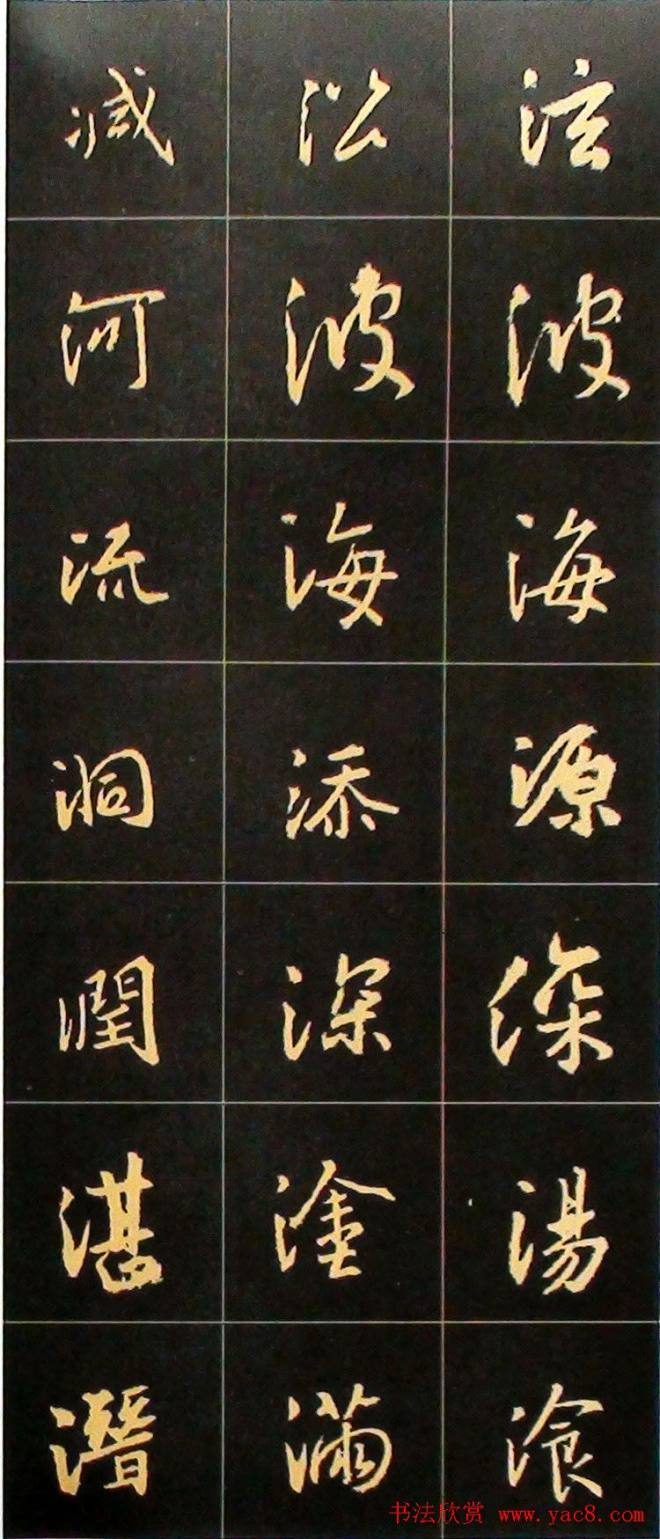 泫波海源深湯湌
沿波海添深塗滿
減河流洞潤湛潛
书法欣赏 www.yac8.com